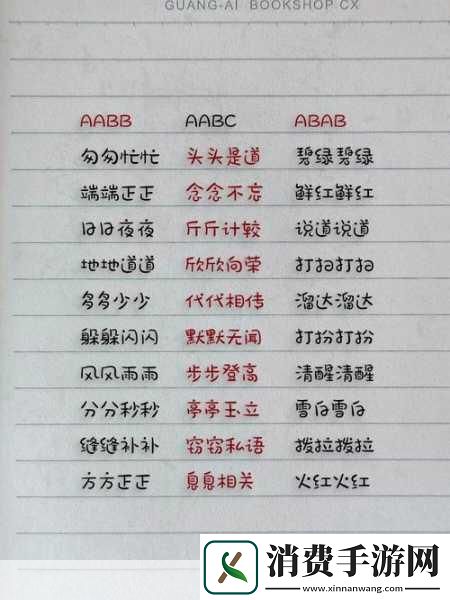 GUANG-AI BOOKSHOP CX
AABB AABC ABAB
匆匆忙忙 头头是道 碧绿碧绿
端端正正 念念不忘 鲜红鲜红
日日夜夜 斤斤计较 说道说道
地地道道 欣欣向荣 打扫打扫
多多少少 代代相传 溜达溜达
躲躲闪闪 默默无闻 打扮打扮
风风雨雨 步步登高 清醒清醒
分分秒秒 亭亭玉立 雪白雪白
缝缝补补 窃窃私语 拨拉拨拉
方方正正 息息相关 火红火红
消费手游网
www.xinnanwang.com